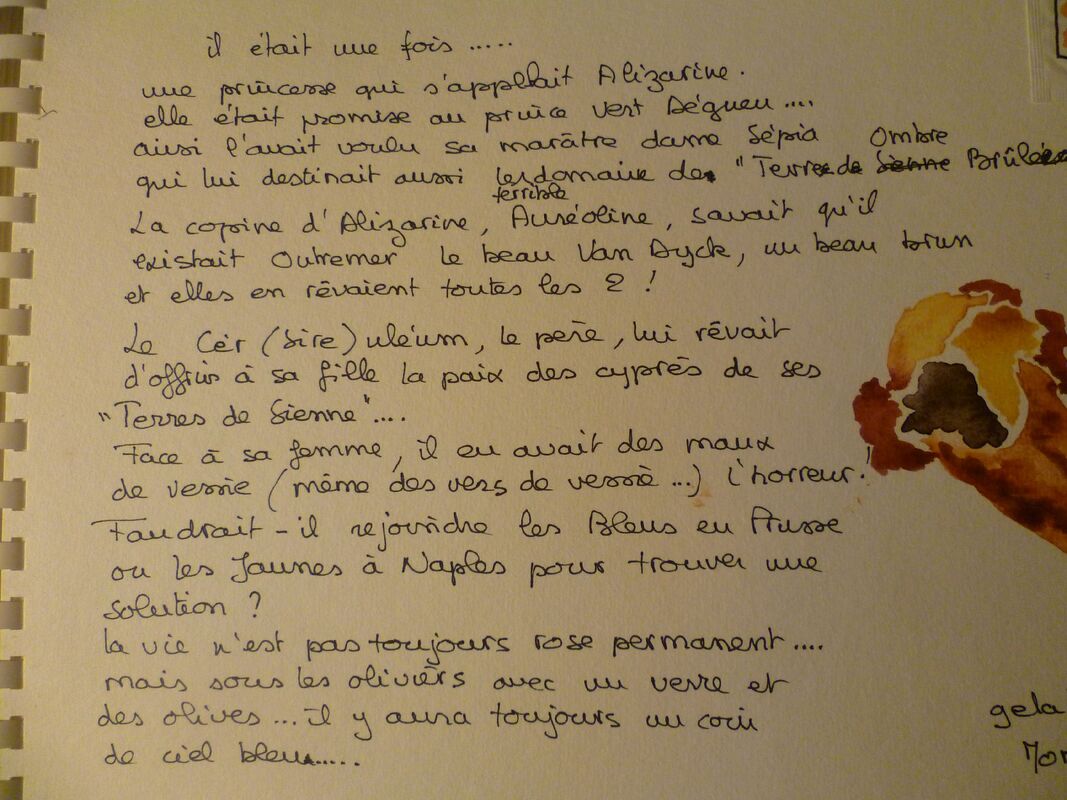 il était une fois .....
une princesse qui s'appelait Alizarine.
elle était promise au prince vert Dégueu....
ainsi l'avait voulu sa marâtre dame Sépia Ombre
qui lui destinait aussi les domaine de "Terre de Sienne Brûlée
terrible
La copine d'Alizarine, Auréoline, savait qu'il
existait Outremer le beau Van Dyck, un beau brun
et elles en rêvaient toutes les 2 !
Le Cér (Sire) uléum, le père, lui rêvait
d'offrir à sa fille la paix des cyprès de ses
"Terres de Sienne"....
Face à sa femme, il en avait des maux
de vessie (même des vers de vessie ...) l'horreur!
Faudrait-il rejoindre les Bleus en Prusse
ou les Jaunes à Naples pour trouver une
solution ?
la vie n'est pas toujours rose permanent....
mais sous les oliviers avec un verre et
des olives ... il y aura toujours un coin
de ciel bleu......
gela
Mor